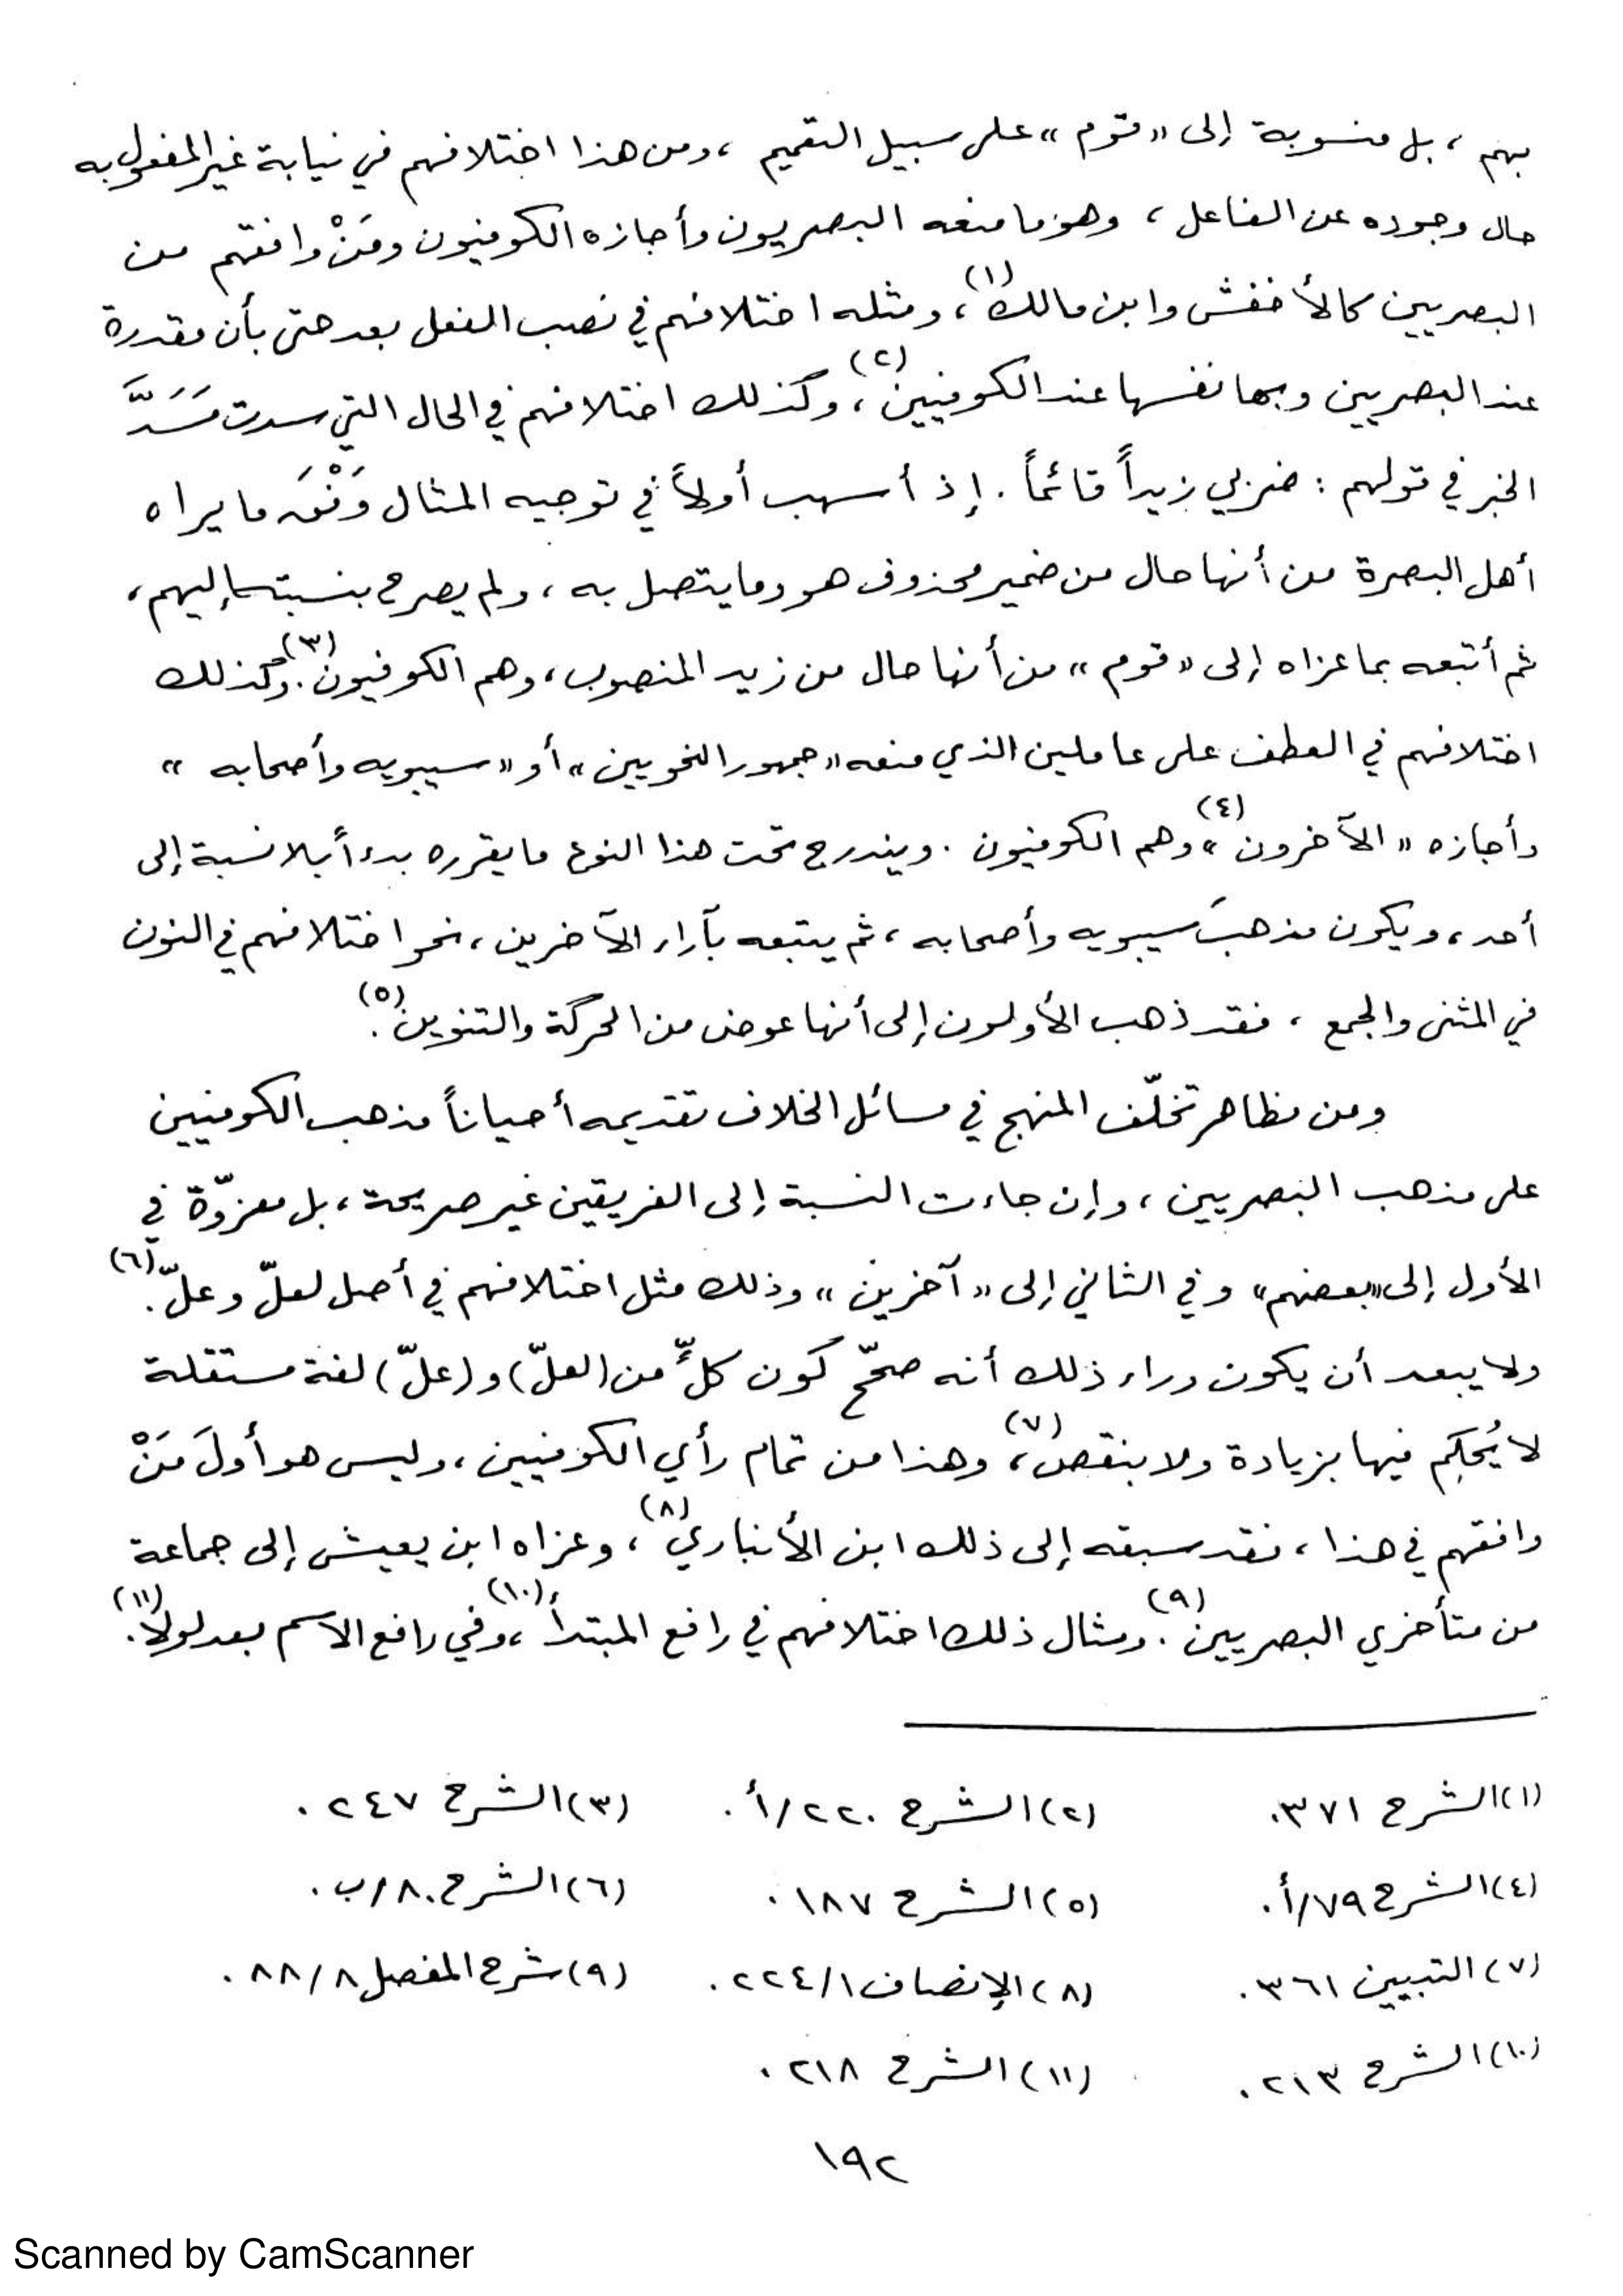 بهم ، بل منسوبة إلى «قوم» على سبيل التعميم ، ومن هذا اختلافهم في نيابة غير المفعول به
حال وجوده عن الفاعل ، وهو ما منعه البصريون وأجازه الكوفيون ومَنْ وافقهم من
البصريين كالأخفش وابن مالك(١) ، ومثله اختلافهم في نصب الفعل بعد حتى بأن مقدرة
عند البصريين وبها نفسها عند الكوفيين(٢) ، وكذلك اختلافهم في الحال التي سدت مَسَدَّ
الخبر في قولهم : ضربي زيداً قائماً . إذ أسهب أولاً في توجيه المثال وَفْقَ ما يراه
أهل البصرة من أنها حال من ضمير محذوف هو وما يتصل به ، ولم يصرح بنسبته إليهم ،
ثم أتبعه بما عزاه إلى «قوم» من أنها حال من زيد المنصوب ، وهم الكوفيون(٣) . وكذلك
اختلافهم في العطف على عاملين الذي منعه «جمهور النحويين» أو «سيبويه وأصحابه »
وأجازه «الآخرون»(٤) وهم الكوفيون . ويندرج تحت هذا النوع ما يقرره بدءاً بلا نسبة إلى
أحد ، ويكون مذهبَ سيبويه وأصحابه ، ثم يتبعه بآراء الآخرين ، نحو اختلافهم في النون
في المثنى والجمع ، فقد ذهب الأولون إلى أنها عوض من الحركة والتنوين(٥) .
ومن مظاهر تخلّف المنهج في مسائل الخلاف تقديمه أحياناً مذهب الكوفيين
على مذهب البصريين ، وإن جاءت النسبة إلى الفريقين غير صريحة ، بل معزوّة في
الأول إلى «بعضهم» وفي الثاني إلى «آخرين» وذلك مثل اختلافهم في أصل لعلّ وعلّ(٦) .
ولا يبعد أن يكون وراء ذلك أنه صحّح كون كلٍّ من (لعلّ) و(علّ) لغة مستقلة
لا يُحكم فيها بزيادة ولا بنقص(٧) ، وهذا من تمام رأي الكوفيين ، وليس هو أولَ مَنْ
وافقهم في هذا ، فقد سبقه إلى ذلك ابن الأنباري(٨) ، وعزاه ابن يعيش إلى جماعة
من متأخري البصريين(٩) . ومثال ذلك اختلافهم في رافع المبتدأ(١٠) ، وفي رافع الاسم بعد لولا(١١) .
(١) الشرح ٣٧١ . (٢) الشرح ٢٢٠/أ . (٣) الشرح ٢٤٧ .
(٤) الشرح ٧٩/أ . (٥) الشرح ١٨٧ . (٦) الشرح ٨٠/ب .
(٧) التبيين ٣٦١ . (٨) الإنصاف ٢٢٤/١ . (٩) شرح المفصل ٨٨/٨ .
(١٠) الشرح ٢١٣ . (١١) الشرح ٢١٨ .
١٩٢
Scanned by CamScanner